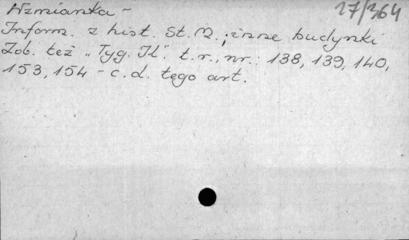 Wzmianka - 27/364
Inform. z hist. St. M.; inne budynki
Zob. też "Tyg. Il". t. r., nr.: 138, 139, 140,
153, 154 - c. d. tego art.